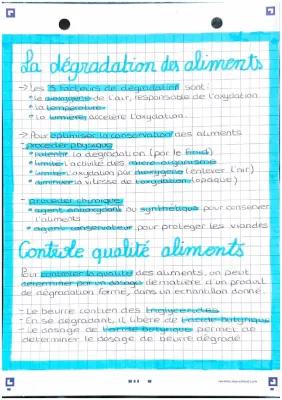 La dégradation des aliments
→ Les 3 facteurs de dégradation sont:
• le dioxygène de l'air, responsable de l'oxydation
• la température
• la lumière accélère l'oxydation.
→ Pour optimiser la conservation des aliments
- procédé physique
• ralentir la dégradation (par le froid)
• limiter l'activité des micro organisme
• limiter l'oxydation par (enlever l'air)
• diminuer la vitesse de l'oxydation (opaque)
- procédé chimique
• agent antioxydant ou synthétique pour conserver
l'aliments
• agent conservateur pour protéger les viandes
Contrôle qualité aliments
Pour contrôler la qualité des aliments, on peut
déterminer par un dosage de matière d'un produit
de dégradation formé, dans un échantillon donné.
- Le beurre contien des triglycérides
- En se dégradant, il libère de l'acide butyrique
- Le dosage de l'acide butyrique permet de
déterminer le dosage de beurre dégradé